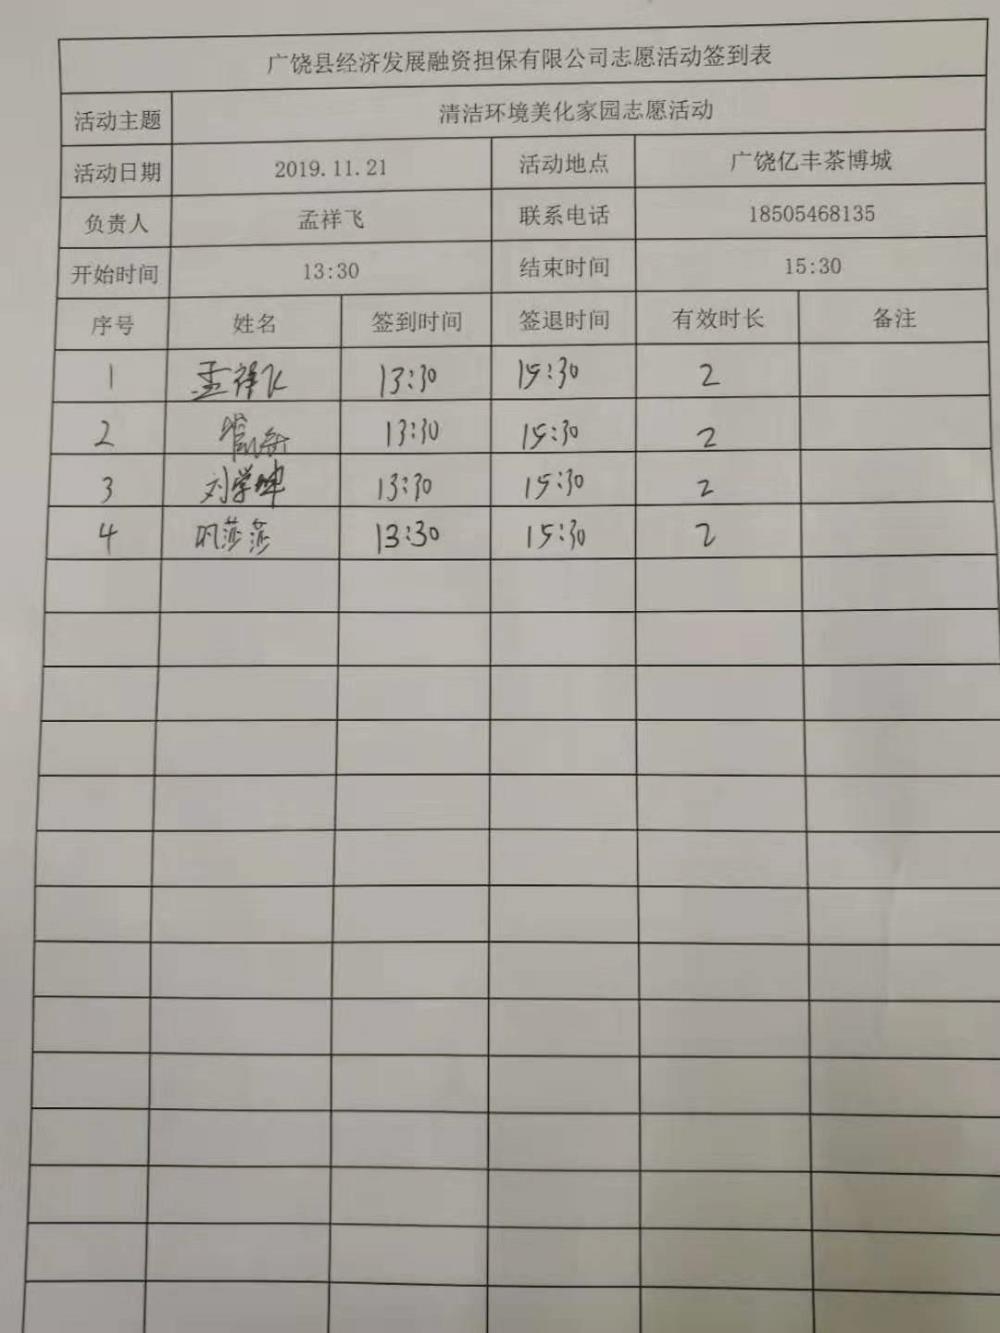 广饶县经济发展融资担保有限公司志愿活动签到表
活动主题 清洁环境美化家园志愿活动
活动日期 2019.11.21 活动地点 广饶亿丰茶博城
负责人 孟祥飞 联系电话 18505468135
开始时间 13:30 结束时间 15:30
序号 姓名 签到时间 签退时间 有效时长 备注
1 孟祥飞 13:30 15:30 2
2 13:30 15:30 2
3 刘学坤 13:30 15:30 2
4 巩莎莎 13:30 15:30 2